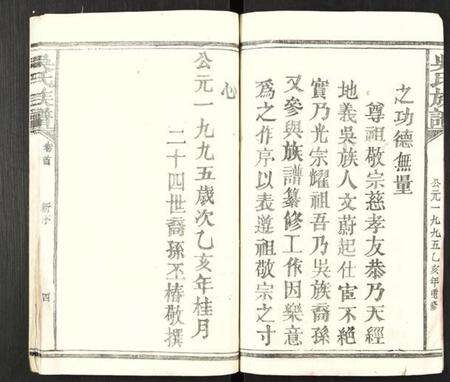 吳氏族譜
公元一九九五乙亥年重修
之功德無量
尊祖敬宗慈孝友恭乃天經
地義吳族人文蔚起仕宦不絕
實乃光宗耀祖吾乃吳族裔孫
又參與族譜纂修工作因樂意
為之作序以表遵祖敬宗之寸
心
公元一九九五歲次乙亥年桂月
二十四世裔孫丕椿敬撰
吳氏族譜
卷首
新序
四